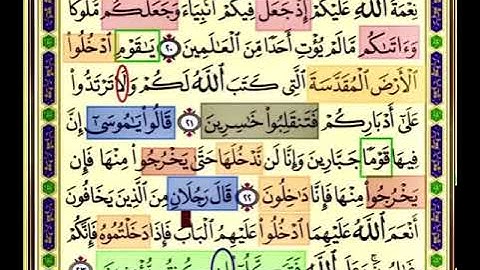 نِعْمَةَ ٱللَّهِ عَلَيْكُمْ إِذْ جَعَلَ فِيكُمْ أَنۢبِيَآءَ وَجَعَلَكُم مُّلُوكًا
وَءَاتَىٰكُم مَّا لَمْ يُؤْتِ أَحَدًا مِّنَ ٱلْعَـٰلَمِينَ ٢٠ يَـٰقَوْمِ ٱدْخُلُوا۟
ٱلْأَرْضَ ٱلْمُقَدَّسَةَ ٱلَّتِى كَتَبَ ٱللَّهُ لَكُمْ وَلَا تَرْتَدُّوا۟
عَلَىٰٓ أَدْبَارِكُمْ فَتَنقَلِبُوا۟ خَـٰسِرِينَ ٢١ قَالُوا۟ يَـٰمُوسَىٰٓ إِنَّ
فِيهَا قَوْمًا جَبَّارِينَ وَإِنَّا لَن نَّدْخُلَهَا حَتَّىٰ يَخْرُجُوا۟ مِنْهَا فَإِن
يَخْرُجُوا۟ مِنْهَا فَإِنَّا دَٰخِلُونَ ٢٢ قَالَ رَجُلَانِ مِنَ ٱلَّذِينَ يَخَافُونَ
أَنْعَمَ ٱللَّهُ عَلَيْهِمَا ٱدْخُلُوا۟ عَلَيْهِمُ ٱلْبَابَ فَإِذَا دَخَلْتُمُوهُ فَإِنَّكُمْ
ٱللَّهِ